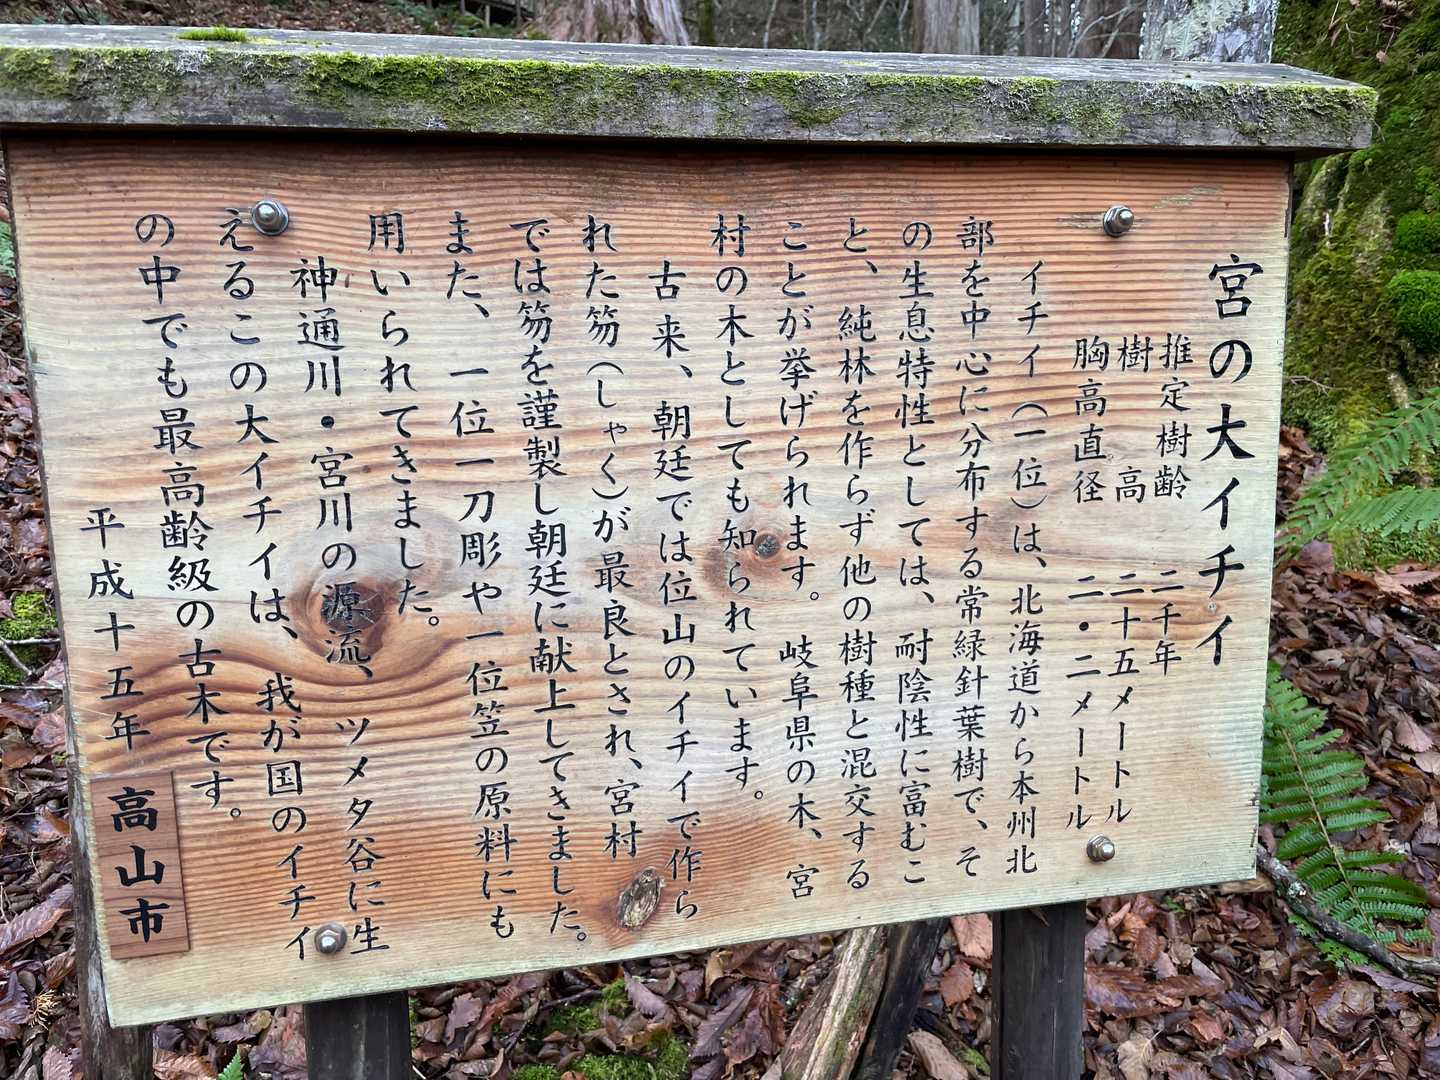 宮の大イチイ
推定樹齢　二千年
樹　　高　二十五メートル
胸高直径　二・二メートル
イチイ（一位）は、北海道から本州北
部を中心に分布する常緑針葉樹で、そ
の生息特性としては、耐陰性に富むこ
と、純林を作らず他の樹種と混交する
ことが挙げられます。岐阜県の木、宮
村の木としても知られています。
古来、朝廷では位山のイチイで作ら
れた笏（しゃく）が最良とされ、宮村
では笏を謹製し朝廷に献上してきました。
また、一位一刀彫や一位笠の原料にも
用いられてきました。
神通川・宮川の源流、ツメタ谷に生
えるこの大イチイは、我が国のイチイ
の中でも最高齢級の古木です。
平成十五年
高山市